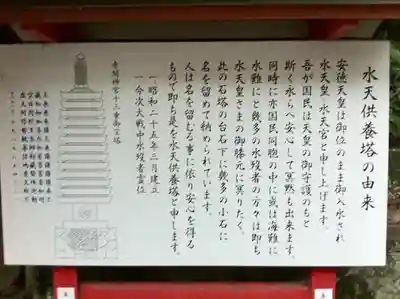 水天供養塔の由来
安徳天皇は御位のまま御入水され
水天皇、水天宮と申し上げます。
吾が国民は天皇の御守護のもと
斯く永らへ安心して冥黙も出来ます。
同時に亦国民同胞の中に或は海難に
水難にと幾多の水歿者の方々は即ち
水天皇さまの御膝元に冥りたく。
此の石塔の台石下に幾多の小石に
名を留めて納められています。
人は名を留むる事に依り安心を得る
もので即ち是を水天供養塔と申します。
一、昭和二十五年三月建立
一、今次大戦中水歿者霊位
赤間神宮十三重御宝塔